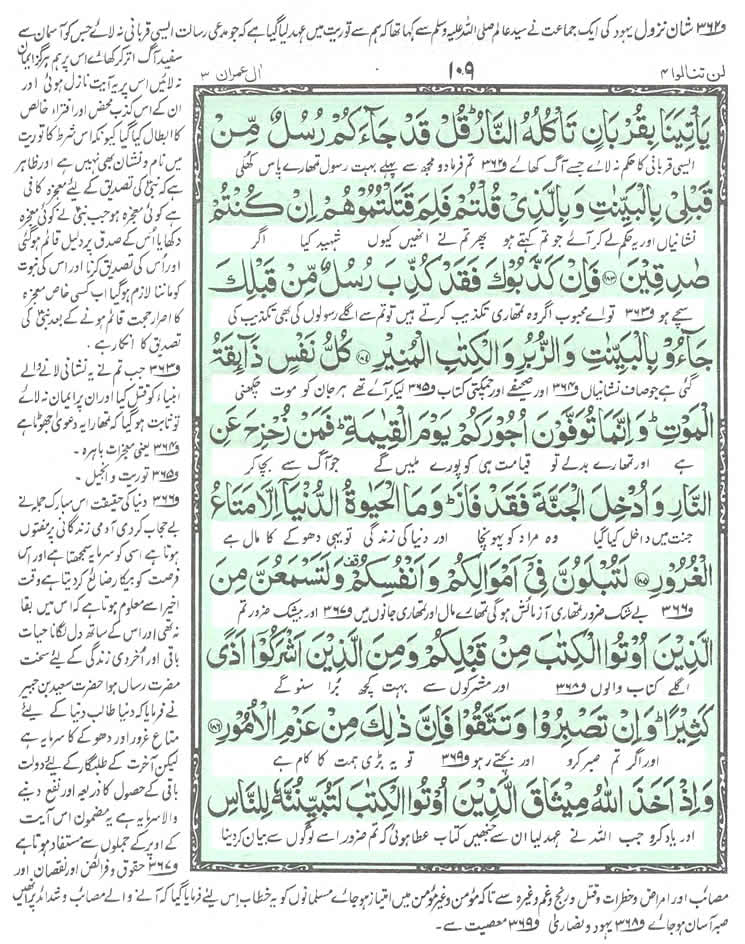 و۳۶۲ شان نزول یہود کی ایک جماعت نے سید عالم صلی اللہ علیہ وسلم سے کہا تھا کہ ہم سے توریت میں عہد لیا گیا ہے کہ جو مدعی رسالت ایسی قربانی نہ لائے جس کو آسمان سے
سفید آگ اتر کر کھائے اس پر ہم ہرگز ایمان
نہ لائیں اس پر یہ آیت نازل ہوئی اور
ان کے اس کذب محض اور افتراء خالص
کا ابطال کیا گیا کیونکہ اس شرط کا توریت
میں نام و نشان بھی نہیں ہے اور ظاہر
ہے کہ نبی کی تصدیق کے لیئے معجزہ کافی
ہے کوئی معجزہ ہو جب نبی نے کوئی معجزہ
دکھایا اس کے صدق پر دلیل قائم ہو گئی
اور اس کی تصدیق کرنا اور اس کی نبوت
کو ماننا لازم ہو گیا اب کسی خاص معجزہ
کا اصرار حجت قائم ہونے کے بعد نبی کی
تصدیق کا انکار ہے۔
و۳۶۳ جب تم نے یہ نشانی لانے والے
انبیاء کو قتل کیا اور ان پر ایمان نہ لائے
تو ثابت ہو گیا کہ تمھارا یہ دعویٰ جھوٹا ہے
و۳۶۴ یعنی معجزات باہرہ۔
و۳۶۵ توریت و انجیل۔
و۳۶۶ دنیا کی حقیقت اس مبارک جملہ نے
بے حجاب کر دی آدمی زندگانی پر مفتوں
ہوتا ہے اسی کو سرمایہ سمجھتا ہے اور اس
فرصت کو بیکار ضائع کر دیتا ہے وقت
اخیر اسے معلوم ہوتا ہے کہ اس میں بقا
نہ تھی اور اس کے ساتھ دل لگانا حیات
باقی اور اخروی زندگی کے لیئے سخت
مضرت رساں ہوا حضرت سعید بن جبیر
نے فرمایا کہ دنیا طالب دنیا کے لیئے
متاع غرور اور دھوکے کا سرمایہ ہے
لیکن آخرت کے طلبگار کے لیئے دولت
باقی کے حصول کا ذریعہ اور نفع دینے
والا سرمایہ ہے یہ مضمون اس آیت
کے اوپر کے جملوں سے مستفاد ہوتا ہے
و۳۶۷ حقوق و فرائض اور نقصان اور
لن تنالوا ۴
۱۰۹
اٰل عمران ۳
يَاْتِيَنَا بِقُرْبَانٍ تَاْكُلُهُ النَّارُ ؕ قُلْ قَدْ جَآءَكُمْ رُسُلٌ مِّنْ
ایسی قربانی کا حکم نہ لائے جسے آگ کھائے و۳۶۲ تم فرما دو مجھ سے پہلے بہت رسول تمھارے پاس کھلی
قَبْلِيْ بِالْبَيِّنٰتِ وَ بِالَّذِيْ قُلْتُمْ فَلِمَ قَتَلْتُمُوْهُمْ اِنْ كُنْتُمْ
نشانیاں اور یہ حکم لے کر آئے جو تم کہتے ہو پھر تم نے انھیں کیوں شہید کیا اگر
صٰدِقِيْنَ ﴿۱۸۳﴾ فَاِنْ كَذَّبُوْكَ فَقَدْ كُذِّبَ رُسُلٌ مِّنْ قَبْلِكَ
سچے ہو و۳۶۳ تو اے محبوب اگر وہ تمھاری تکذیب کرتے ہیں تو تم سے اگلے رسولوں کی بھی تکذیب کی
جَآءُوْ بِالْبَيِّنٰتِ وَ الزُّبُرِ وَ الْكِتٰبِ الْمُنِيْرِ ﴿۱۸۴﴾ كُلُّ نَفْسٍ ذَآىِٕقَةُ
گئی ہے جو صاف نشانیاں و۳۶۴ اور صحیفے اور چمکتی کتاب و۳۶۵ لیکر آئے تھے ہر جان کو موت چکھنی
الْمَوْتِ ؕ وَ اِنَّمَا تُوَفَّوْنَ اُجُوْرَكُمْ يَوْمَ الْقِيٰمَةِ ؕ فَمَنْ زُحْزِحَ عَنِ
ہے اور تمھارے بدلے تو قیامت ہی کو پورے ملیں گے جو آگ سے بچا کر
النَّارِ وَ اُدْخِلَ الْجَنَّةَ فَقَدْ فَازَ ؕ وَ مَا الْحَيٰوةُ الدُّنْيَاۤ اِلَّا مَتَاعُ
جنت میں داخل کیا گیا وہ مراد کو پہونچا اور دنیا کی زندگی تو یہی دھوکے کا مال ہے
الْغُرُوْرِ ﴿۱۸۵﴾ لَتُبْلَوُنَّ فِيْۤ اَمْوَالِكُمْ وَ اَنْفُسِكُمْ ۫ وَ لَتَسْمَعُنَّ مِنَ
و۳۶۶ بے شک ضرور تمھاری آزمائش ہو گی تمھارے مال اور تمھاری جانوں میں و۳۶۷ اور بیشک ضرور تم
الَّذِيْنَ اُوْتُوا الْكِتٰبَ مِنْ قَبْلِكُمْ وَ مِنَ الَّذِيْنَ اَشْرَكُوْۤا اَذًى
اگلے کتاب والوں و۳۶۸ اور مشرکوں سے بہت کچھ برا سنو گے
كَثِيْرًا ؕ وَ اِنْ تَصْبِرُوْا وَ تَتَّقُوْا فَاِنَّ ذٰلِكَ مِنْ عَزْمِ الْاُمُوْرِ ﴿۱۸۶﴾
اور اگر تم صبر کرو اور بچتے رہو و۳۶۹ تو یہ بڑی ہمت کا کام ہے
وَ اِذْ اَخَذَ اللّٰهُ مِيْثَاقَ الَّذِيْنَ اُوْتُوا الْكِتٰبَ لَتُبَيِّنُنَّهٗ لِلنَّاسِ
اور یاد کرو جب اللہ نے عہد لیا ان سے جنھیں کتاب عطا ہوئی کہ تم ضرور اسے لوگوں سے بیان کر دینا
مصائب اور امراض و خطرات و قتل و رنج و غم وغیرہ سے تاکہ مؤمن و غیر مؤمن میں امتیاز ہو جائے مسلمانوں کو یہ خطاب اس لیئے فرمایا گیا کہ آنے والے مصائب و شدائد پر انھیں
صبر آسان ہو جائے و۳۶۸ یہود و نصاریٰ و۳۶۹ معصیت سے۔